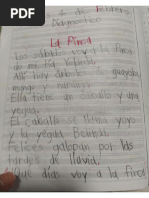 4 de Febrero
Diagnóstico
La Finca
Los sábados voy a la finca
de mi tía Yolanda.
Allí hay árboles de guayaba,
mango y
Ella tiene un caballo y una
yegua.
El caballo se llama yuyo
y la yegua Bonita.
Felices galopan por las
tardes de lluvia.
¡Que días voy a la finca